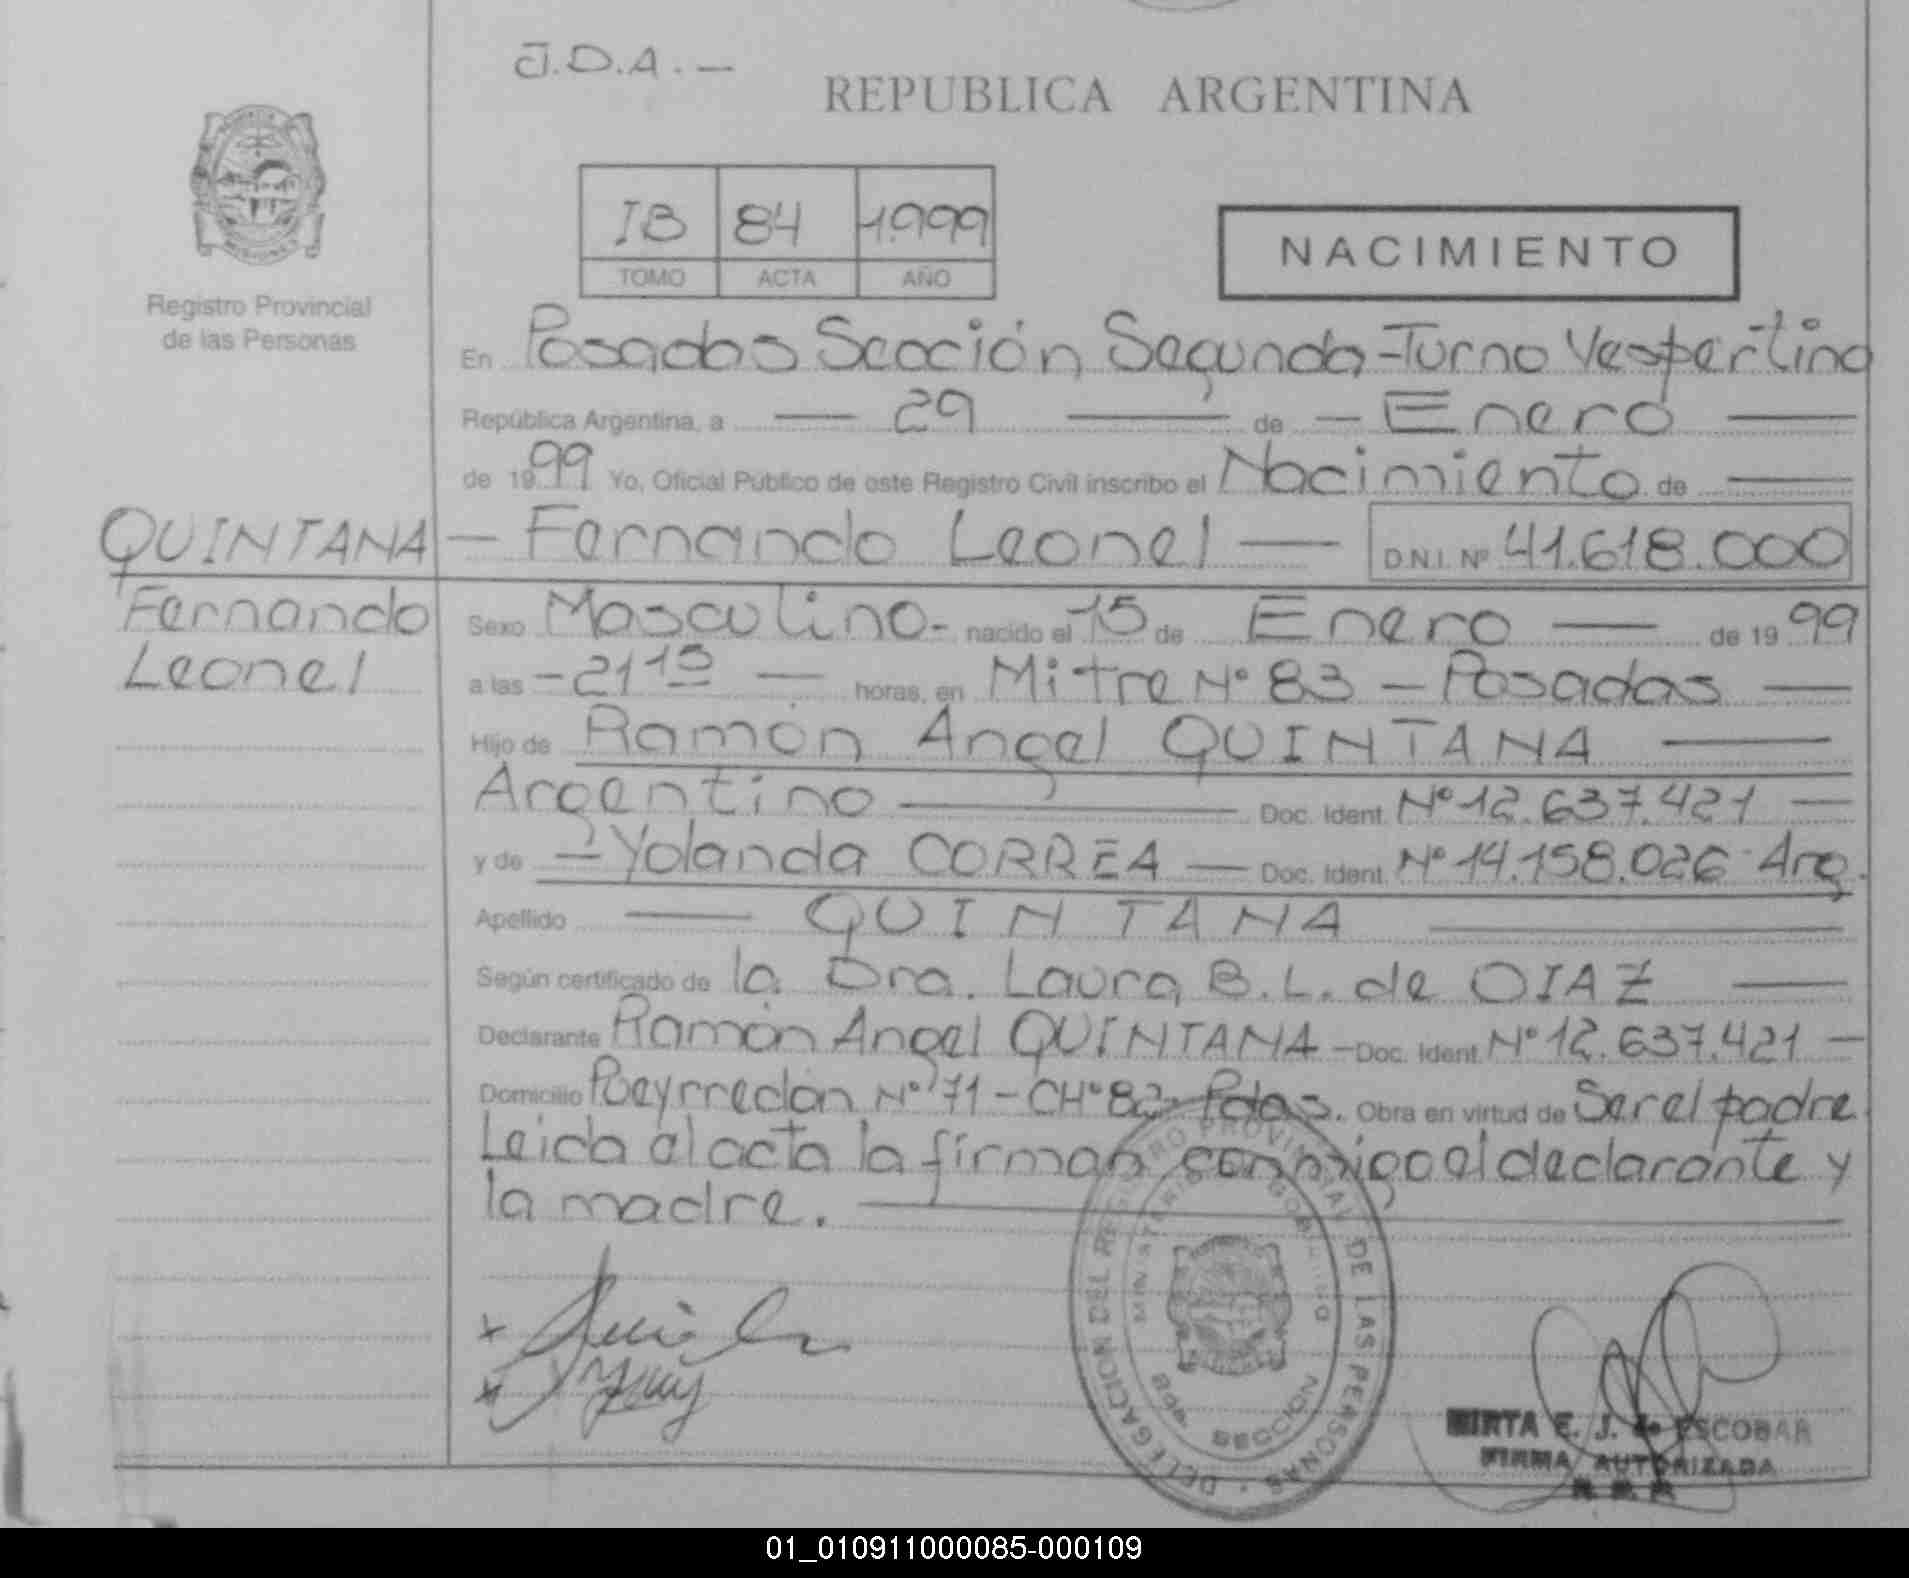 J.D.A.-
REPUBLICA ARGENTINA
IB 84 1.999
TOMO ACTA AÑO
NACIMIENTO
Registro Provincial
de las Personas
En Posadas Sección Segunda-Turno Vespertino
República Argentina, a — 29 — de — Enero —
de 1999 Yo, Oficial Público de este Registro Civil inscribo el Nacimiento de —
QUINTANA — Fernando Leonel — D.N.I. Nº 41.618.000
Fernando
Leonel
Sexo Masculino- nacido el 15 de Enero — de 1999
a las -21 15 — horas, en Mitre Nº 83 - Posadas —
Hijo de Ramón Angel QUINTANA —
Argentino — Doc. Ident. Nº 12.637.421 —
y de — Yolanda CORREA — Doc. Ident. Nº 14.158.026 Arg.
Apellido — QUINTANA —
Según certificado de la Dra. Laura B.L. de DIAZ —
Declarante Ramón Angel QUINTANA - Doc. Ident. Nº 12.637.421 —
Domicilio Pueyrredón Nº 71 - CHº 82- Pdas. Obra en virtud de Ser el padre
Leida el acta la firman conmigo el declarante y
la madre. —
DELEGACION DEL REGISTRO PROVINCIAL DE LAS PERSONAS
MINISTERIO DE GOBIERNO
SECCION
MIRTA E. J. de ESCOBAR
FIRMA AUTORIZADA
01_010911000085-000109